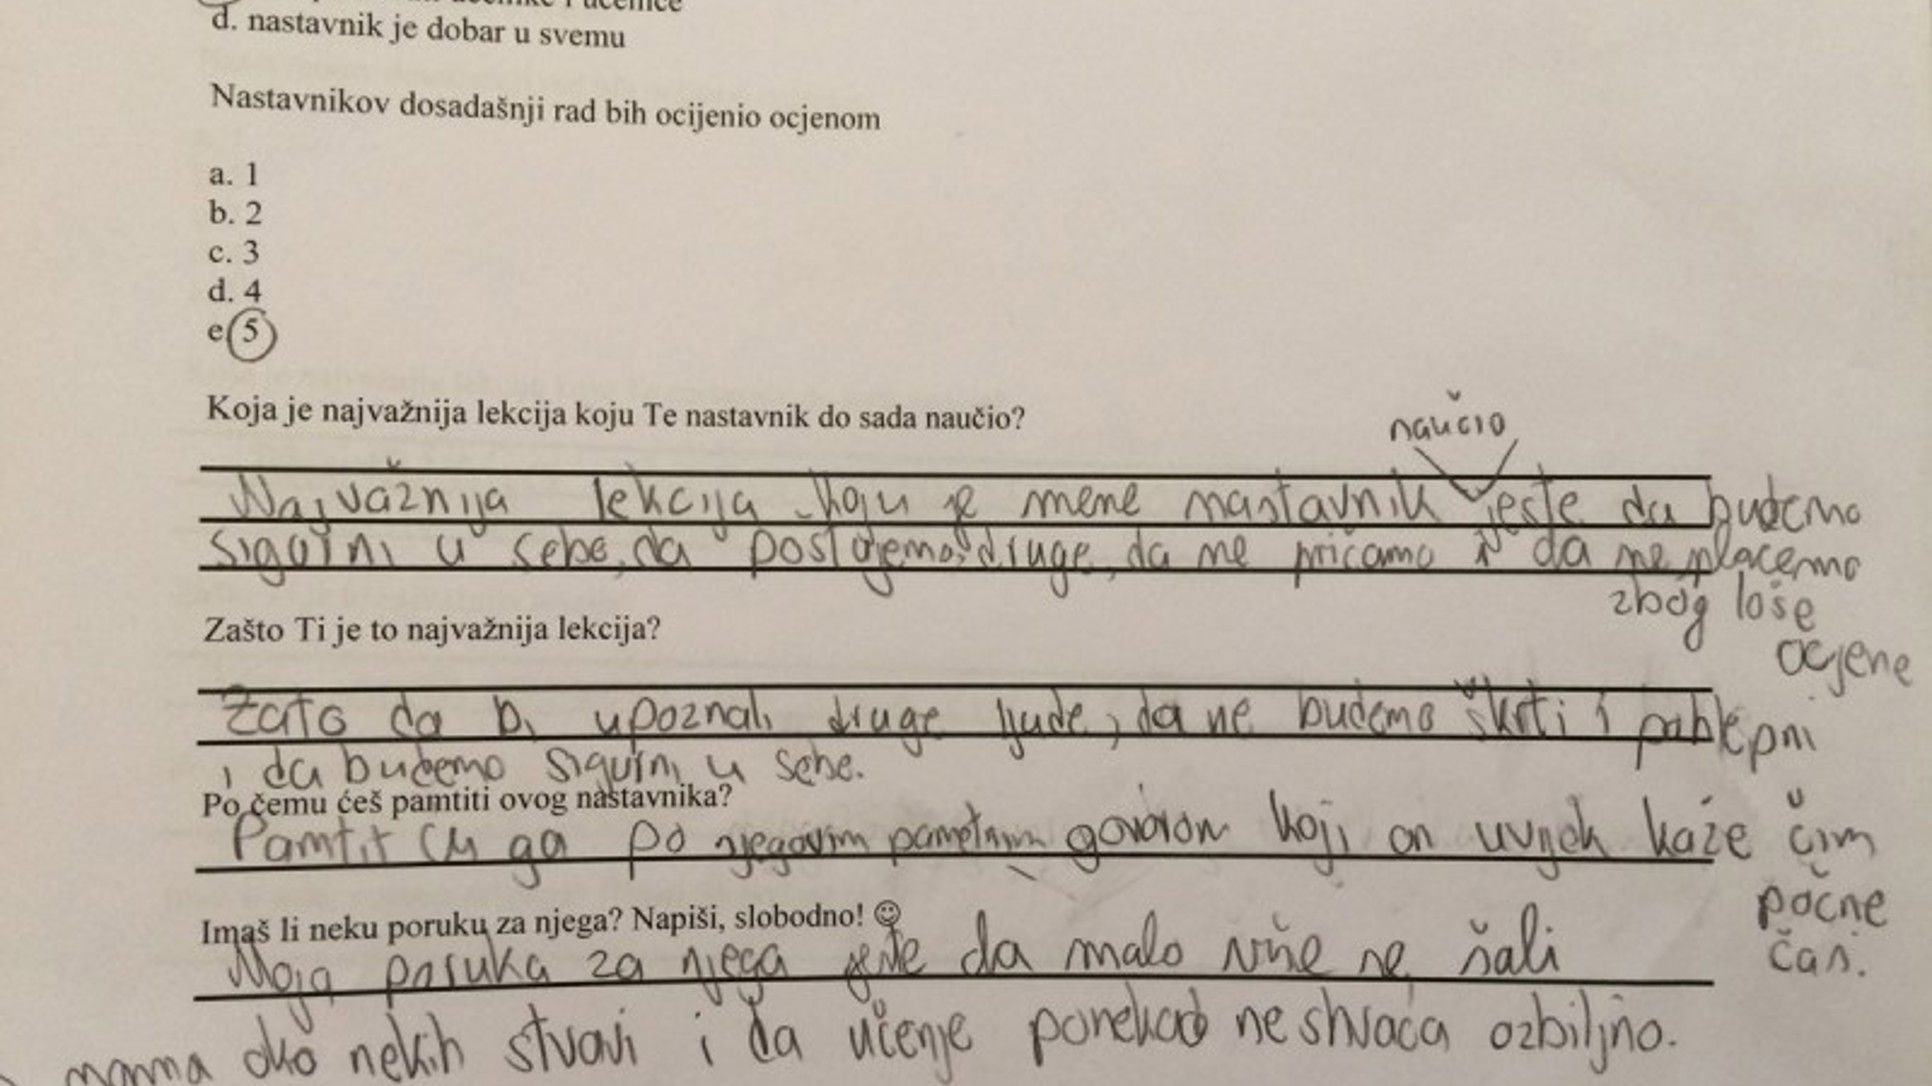 učenike i učenice
d. nastavnik je dobar u svemu
Nastavnikov dosadašnji rad bih ocijenio ocjenom
a. 1
b. 2
c. 3
d. 4
e. 5
Koja je najvažnija lekcija koju Te nastavnik do sada naučio?
naučio
Najvažnija lekcija koju je mene nastavnik jeste da budemo
sigurni u sebe, da postujemo druge, da ne pričamo i da ne placemo
zbog loše
ocjene
Zašto Ti je to najvažnija lekcija?
Zato da bi upoznali druge ljude, da ne budemo škrti i pohlepni
i da budemo sigurni u sebe.
Po čemu ćeš pamtiti ovog nastavnika?
Pamtit ću ga po njegovim pametnim govorom koji on uvijek kaže čim
počne
čas.
Imaš li neku poruku za njega? Napiši, slobodno! ☺
Moja poruka za njega jeste da malo više ne šali
nama oko nekih stvari i da učenje ponekad ne shvaća ozbiljno.